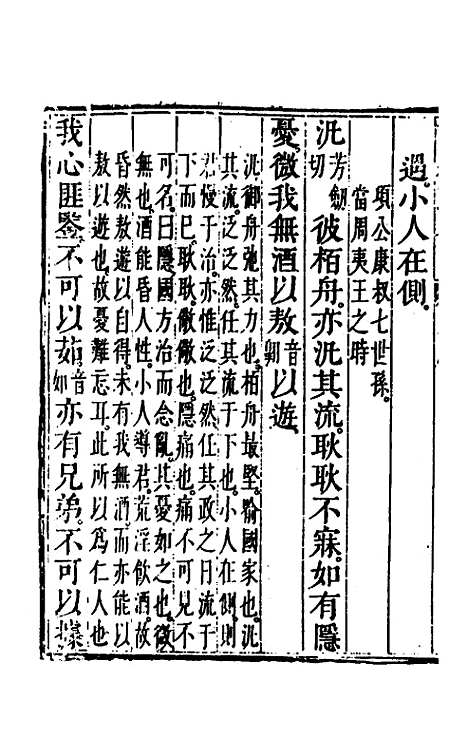 遇。小人在側。
項公康叔七世孫。
當周夷王之時
汎芳劔切彼栢舟。亦汎其流。耿耿不寐。如有隱
憂。微我無酒以敖音翺以遊。
汎御舟弛其力也。栢舟最堅。喻國家也。汎
其流。泛泛然。任其流于下也。小人在側。則
君慢于治。亦惟泛泛然任其政之日流于
下而巳。耿耿。儆儆也。隱痛也。痛不可見。不
可名。曰隱。國方治而念亂。其憂如之也。微
無也。酒能昏人性。小人導君荒淫飲酒。故
昏然敖遊以自得。未有我無酒而亦能以
敖以遊也。故憂難忘耳。此所以爲仁人也
我心匪鑒。不可以茹音如亦有兄弟。不可以據